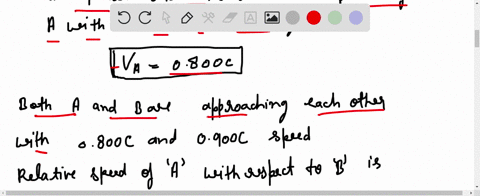 A with
V_A = 0.800C
Both A and B are approaching each other
with 0.800C and 0.900C speed
Relative speed of 'A' with respect to 'B' is